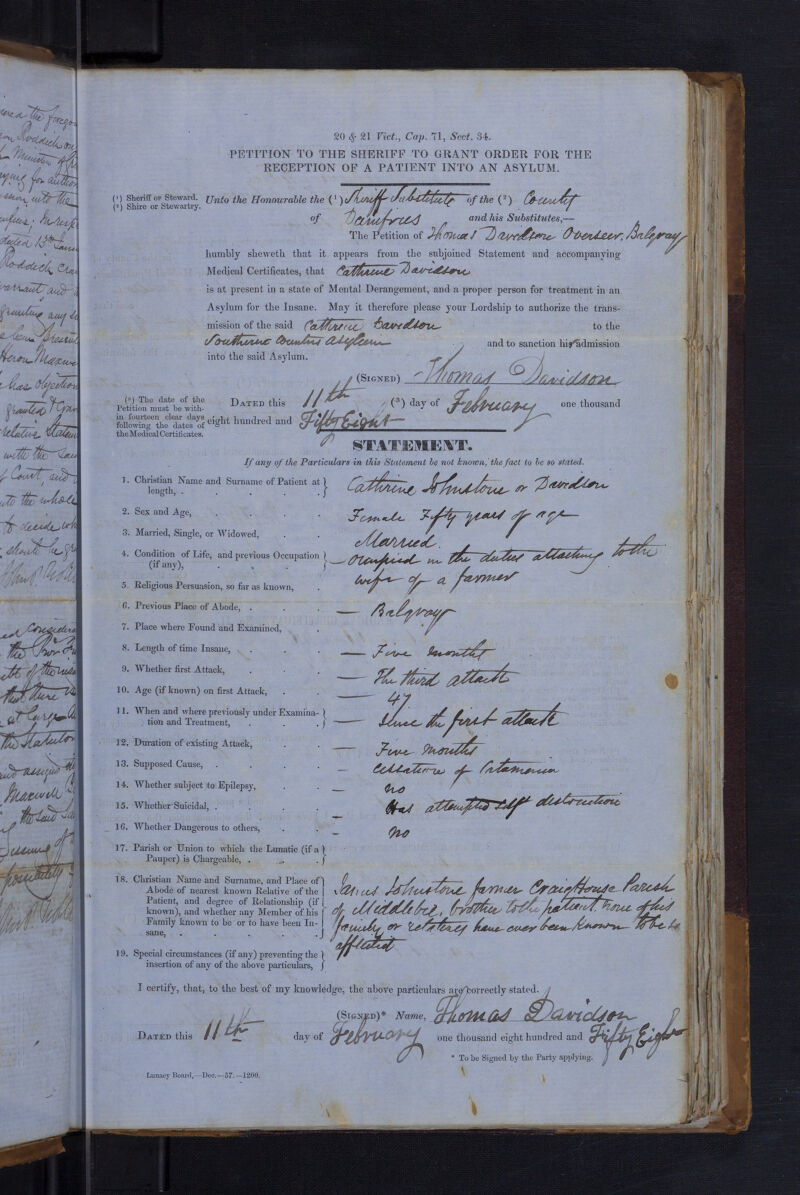 20 & 21 Vict., Cap. 71, Sect. 34.
PETITION TO THE SHERIFF TO GRANT ORDER FOR THE
RECEPTION OF A PATIENT INTO AN ASYLUM.
(¹) Sheriff or Steward.
(²) Shire or Stewartry.
Unto the Honourable the (¹) Sheriff Substitute of the (²) County
of Dumfries and his Substitutes,—
The Petition of Thomas Davidson Overseer, Balgray
humbly sheweth that it appears from the subjoined Statement and accompanying
Medical Certificates, that Cathrine Davidson
is at present in a state of Mental Derangement, and a proper person for treatment in an
Asylum for the Insane. May it therefore please your Lordship to authorize the trans-
mission of the said Cathrine Davidson to the
Southern Counties Asylum and to sanction his admission
into the said Asylum.
(Signed) Thomas Davidson
(³) The date of the
Petition must be with-
in fourteen clear days
following the dates of
the Medical Certificates.
Dated this 11th (³) day of February one thousand
eight hundred and Fifty Eight
STATEMENT.
If any of the Particulars in this Statement be not known, the fact to be so stated.
1. Christian Name and Surname of Patient at
length, . Cathrine Johnstone or Davidson
2. Sex and Age, Female Fifty years of age
3. Married, Single, or Widowed, Married
4. Condition of Life, and previous Occupation
(if any), Occupied in the duties attaching to the
wife of a farmer
5. Religious Persuasion, so far as known,
6. Previous Place of Abode, . — Balgray
7. Place where Found and Examined,
8. Length of time Insane, — Five months
9. Whether first Attack, — The third attack
10. Age (if known) on first Attack, — 47
11. When and where previously under Examina-
tion and Treatment, — Since the first attack
12. Duration of existing Attack, — Five Months
13. Supposed Cause, . — Cessation of Catamenia
14. Whether subject to Epilepsy, — no
15. Whether Suicidal, . — Has attempted self destruction
16. Whether Dangerous to others, — no
17. Parish or Union to which the Lunatic (if a
Pauper) is Chargeable, .
18. Christian Name and Surname, and Place of
Abode of nearest known Relative of the
Patient, and degree of Relationship (if
known), and whether any Member of his
Family known to be or to have been In-
sane, .
James Johnstone farmer Craighouse Parish
of Middlebie, brother to the patient. none of his
family or relatives have ever been known to be so
afflicted
19. Special circumstances (if any) preventing the
insertion of any of the above particulars,
I certify, that, to the best of my knowledge, the above particulars are correctly stated.
(Signed)* Name, Thomas Davidson
Dated this 11th day of February one thousand eight hundred and Fifty Eight
* To be Signed by the Party applying.
Lunacy Board,—Dec.—57.—1200.